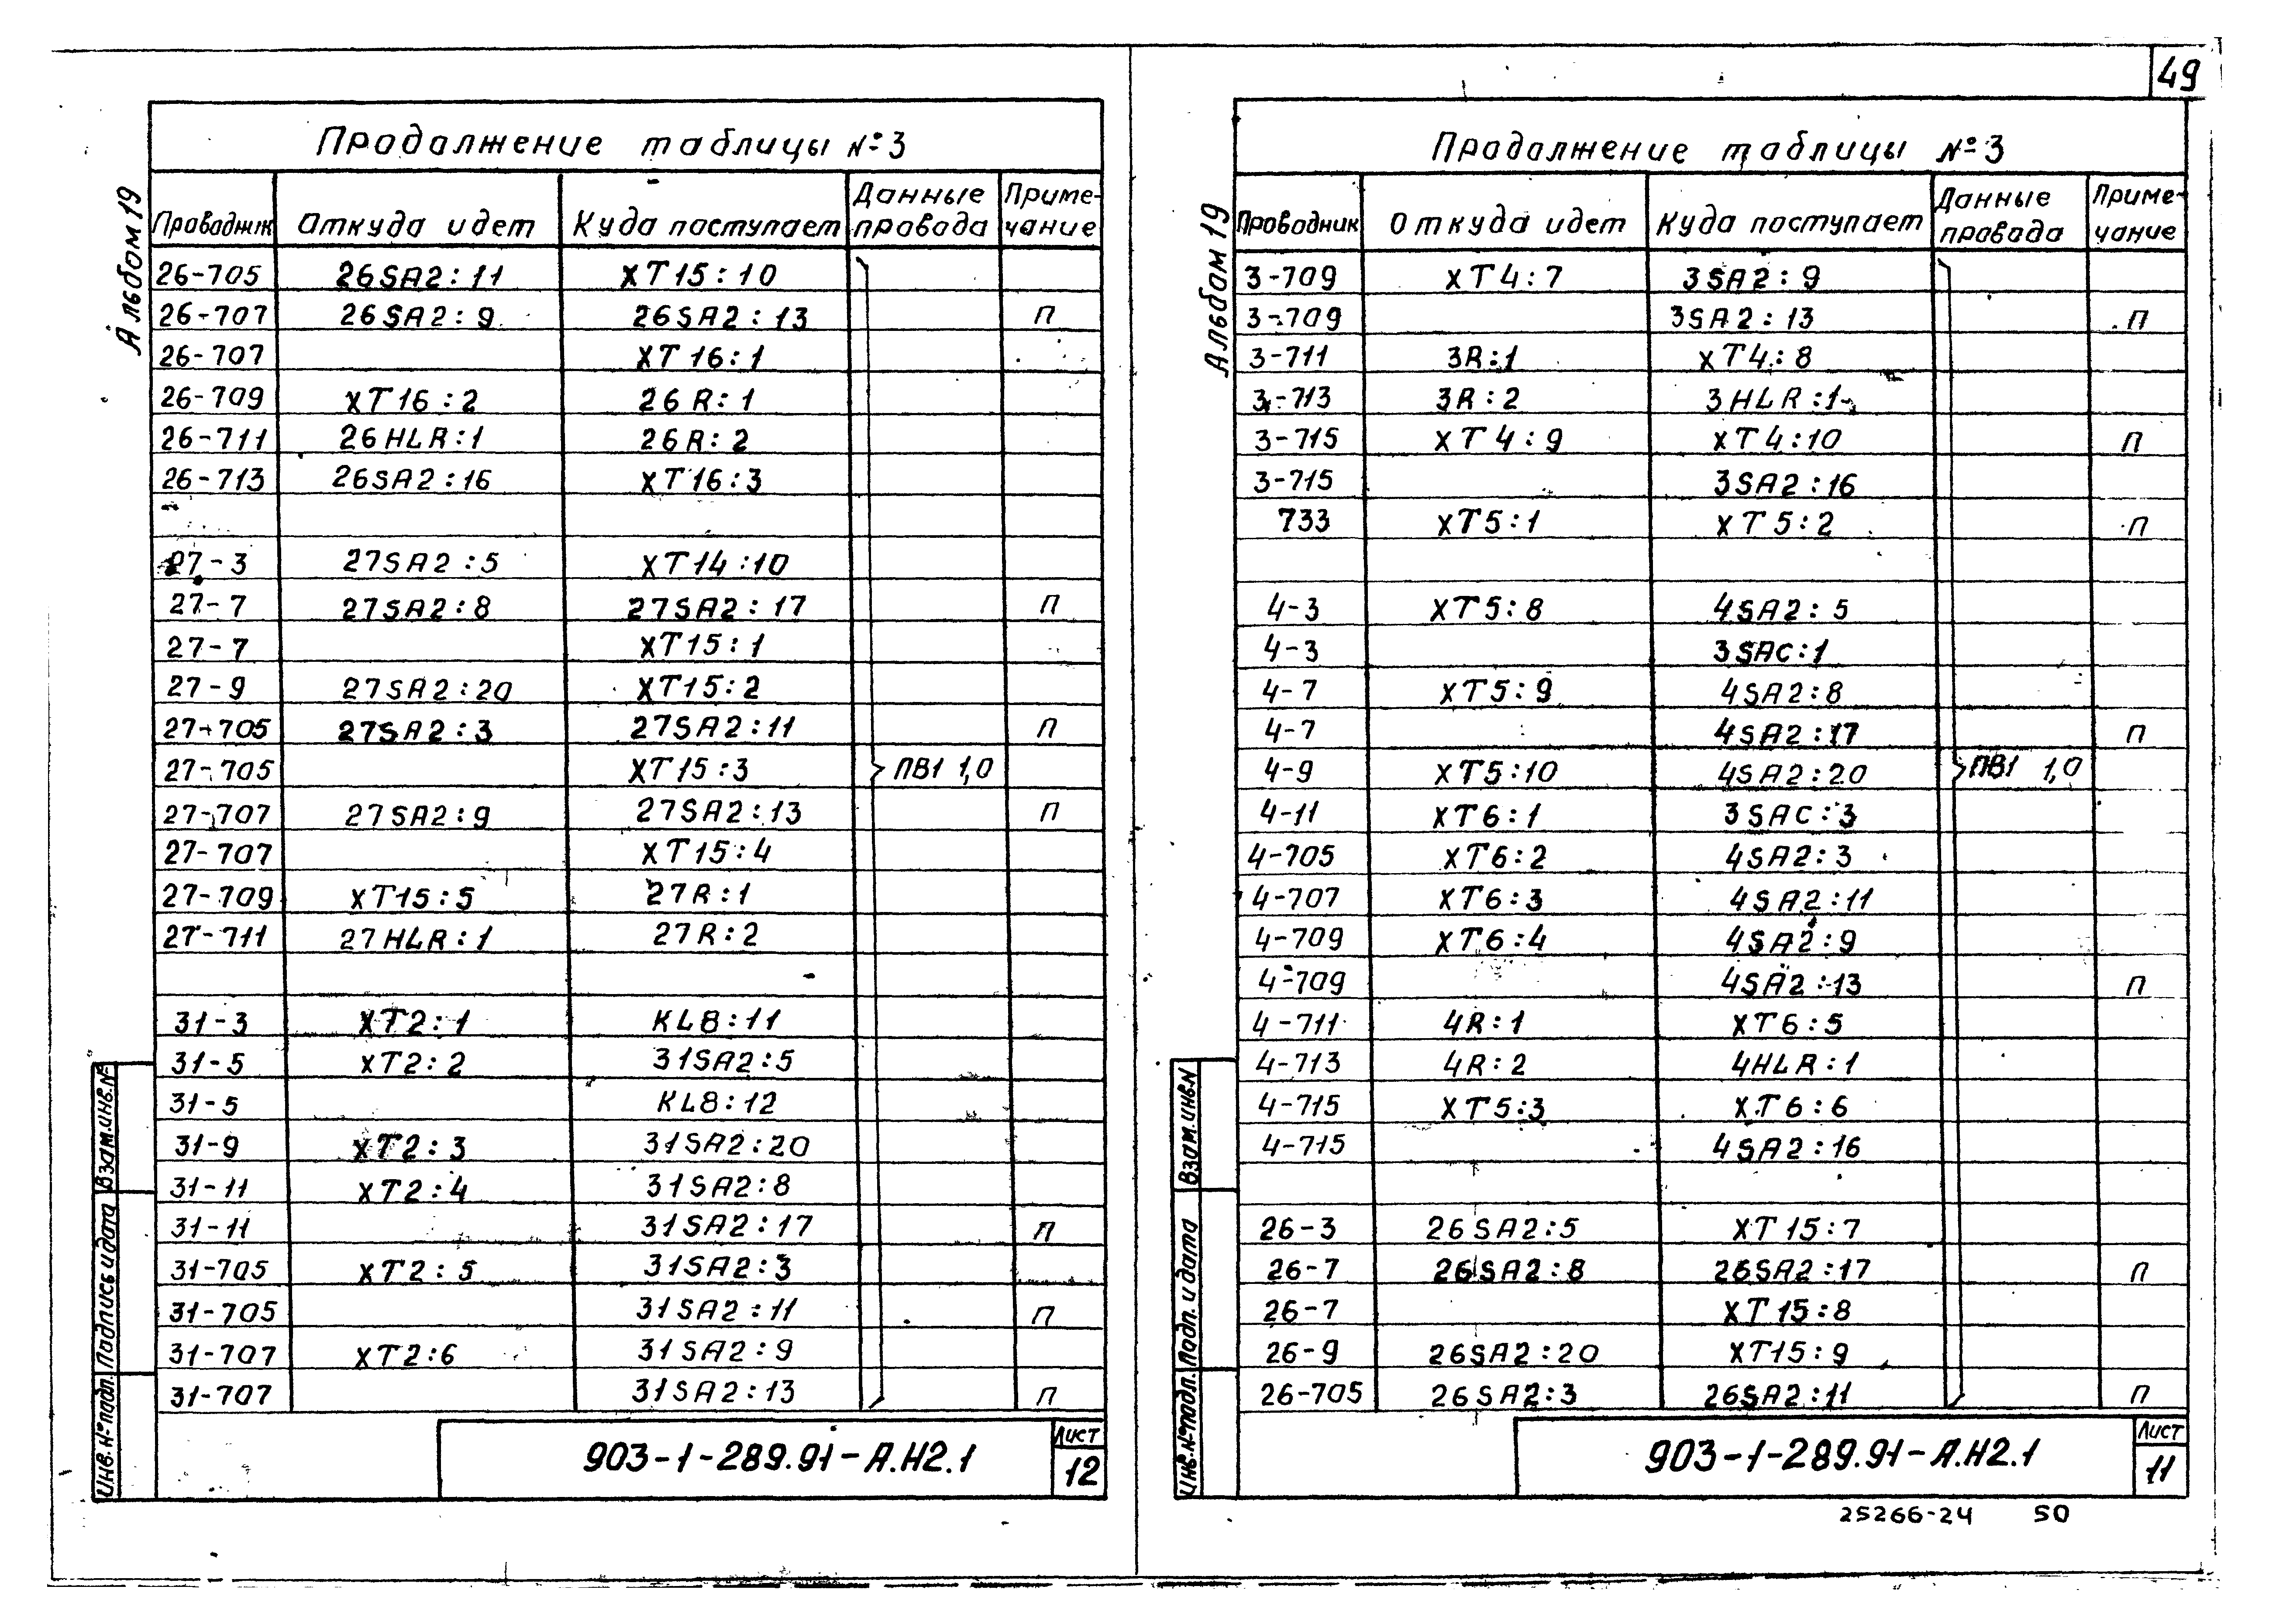 49
Альбом 19
Продолжение таблицы №3
Проводник Откуда идет Куда поступает Данные провода Приме-чание
26-705 26SA2:11 XT15:10
26-707 26SA2:9 26SA2:13 П
26-707 XT16:1
26-709 XT16:2 26R:1
26-711 26HLR:1 26R:2
26-713 26SA2:16 XT16:3
27-3 27SA2:5 XT14:10
27-7 27SA2:8 27SA2:17 П
27-7 XT15:1
27-9 27SA2:20 XT15:2
27-705 27SA2:3 27SA2:11 П
27-705 XT15:3 ПВ1 1,0
27-707 27SA2:9 27SA2:13 П
27-707 XT15:4
27-709 XT15:5 27R:1
27-711 27HLR:1 27R:2
31-3 XT2:1 KL8:11
31-5 XT2:2 31SA2:5
31-5 KL8:12
31-9 XT2:3 31SA2:20
31-11 XT2:4 31SA2:8
31-11 31SA2:17 П
31-705 XT2:5 31SA2:3
31-705 31SA2:11 П
31-707 XT2:6 31SA2:9
31-707 31SA2:13 П
Взам.инв.№
Подпись и дата
Инв.№подл.
903-1-289.91-А.Н2.1
Лист
12
Альбом 19
Продолжение таблицы №3
Проводник Откуда идет Куда поступает Данные провода Приме-чание
3-709 XT4:7 3SA2:9
3-709 3SA2:13 П
3-711 3R:1 XT4:8
3-713 3R:2 3HLR:1
3-715 XT4:9 XT4:10 П
3-715 3SA2:16
733 XT5:1 XT5:2 П
4-3 XT5:8 4SA2:5
4-3 3SAC:1
4-7 XT5:9 4SA2:8
4-7 4SA2:17 П
4-9 XT5:10 4SA2:20 ПВ1 1,0
4-11 XT6:1 3SAC:3
4-705 XT6:2 4SA2:3
4-707 XT6:3 4SA2:11
4-709 XT6:4 4SA2:9
4-709 4SA2:13 П
4-711 4R:1 XT6:5
4-713 4R:2 4HLR:1
4-715 XT5:3 XT6:6
4-715 4SA2:16
26-3 26SA2:5 XT15:7
26-7 26SA2:8 26SA2:17 П
26-7 XT15:8
26-9 26SA2:20 XT15:9
26-705 26SA2:3 26SA2:11 П
Взам.инв.N
Подп. и дата
Инв.№подл.
903-1-289.91-А.Н2.1
Лист
11
25266-24 50